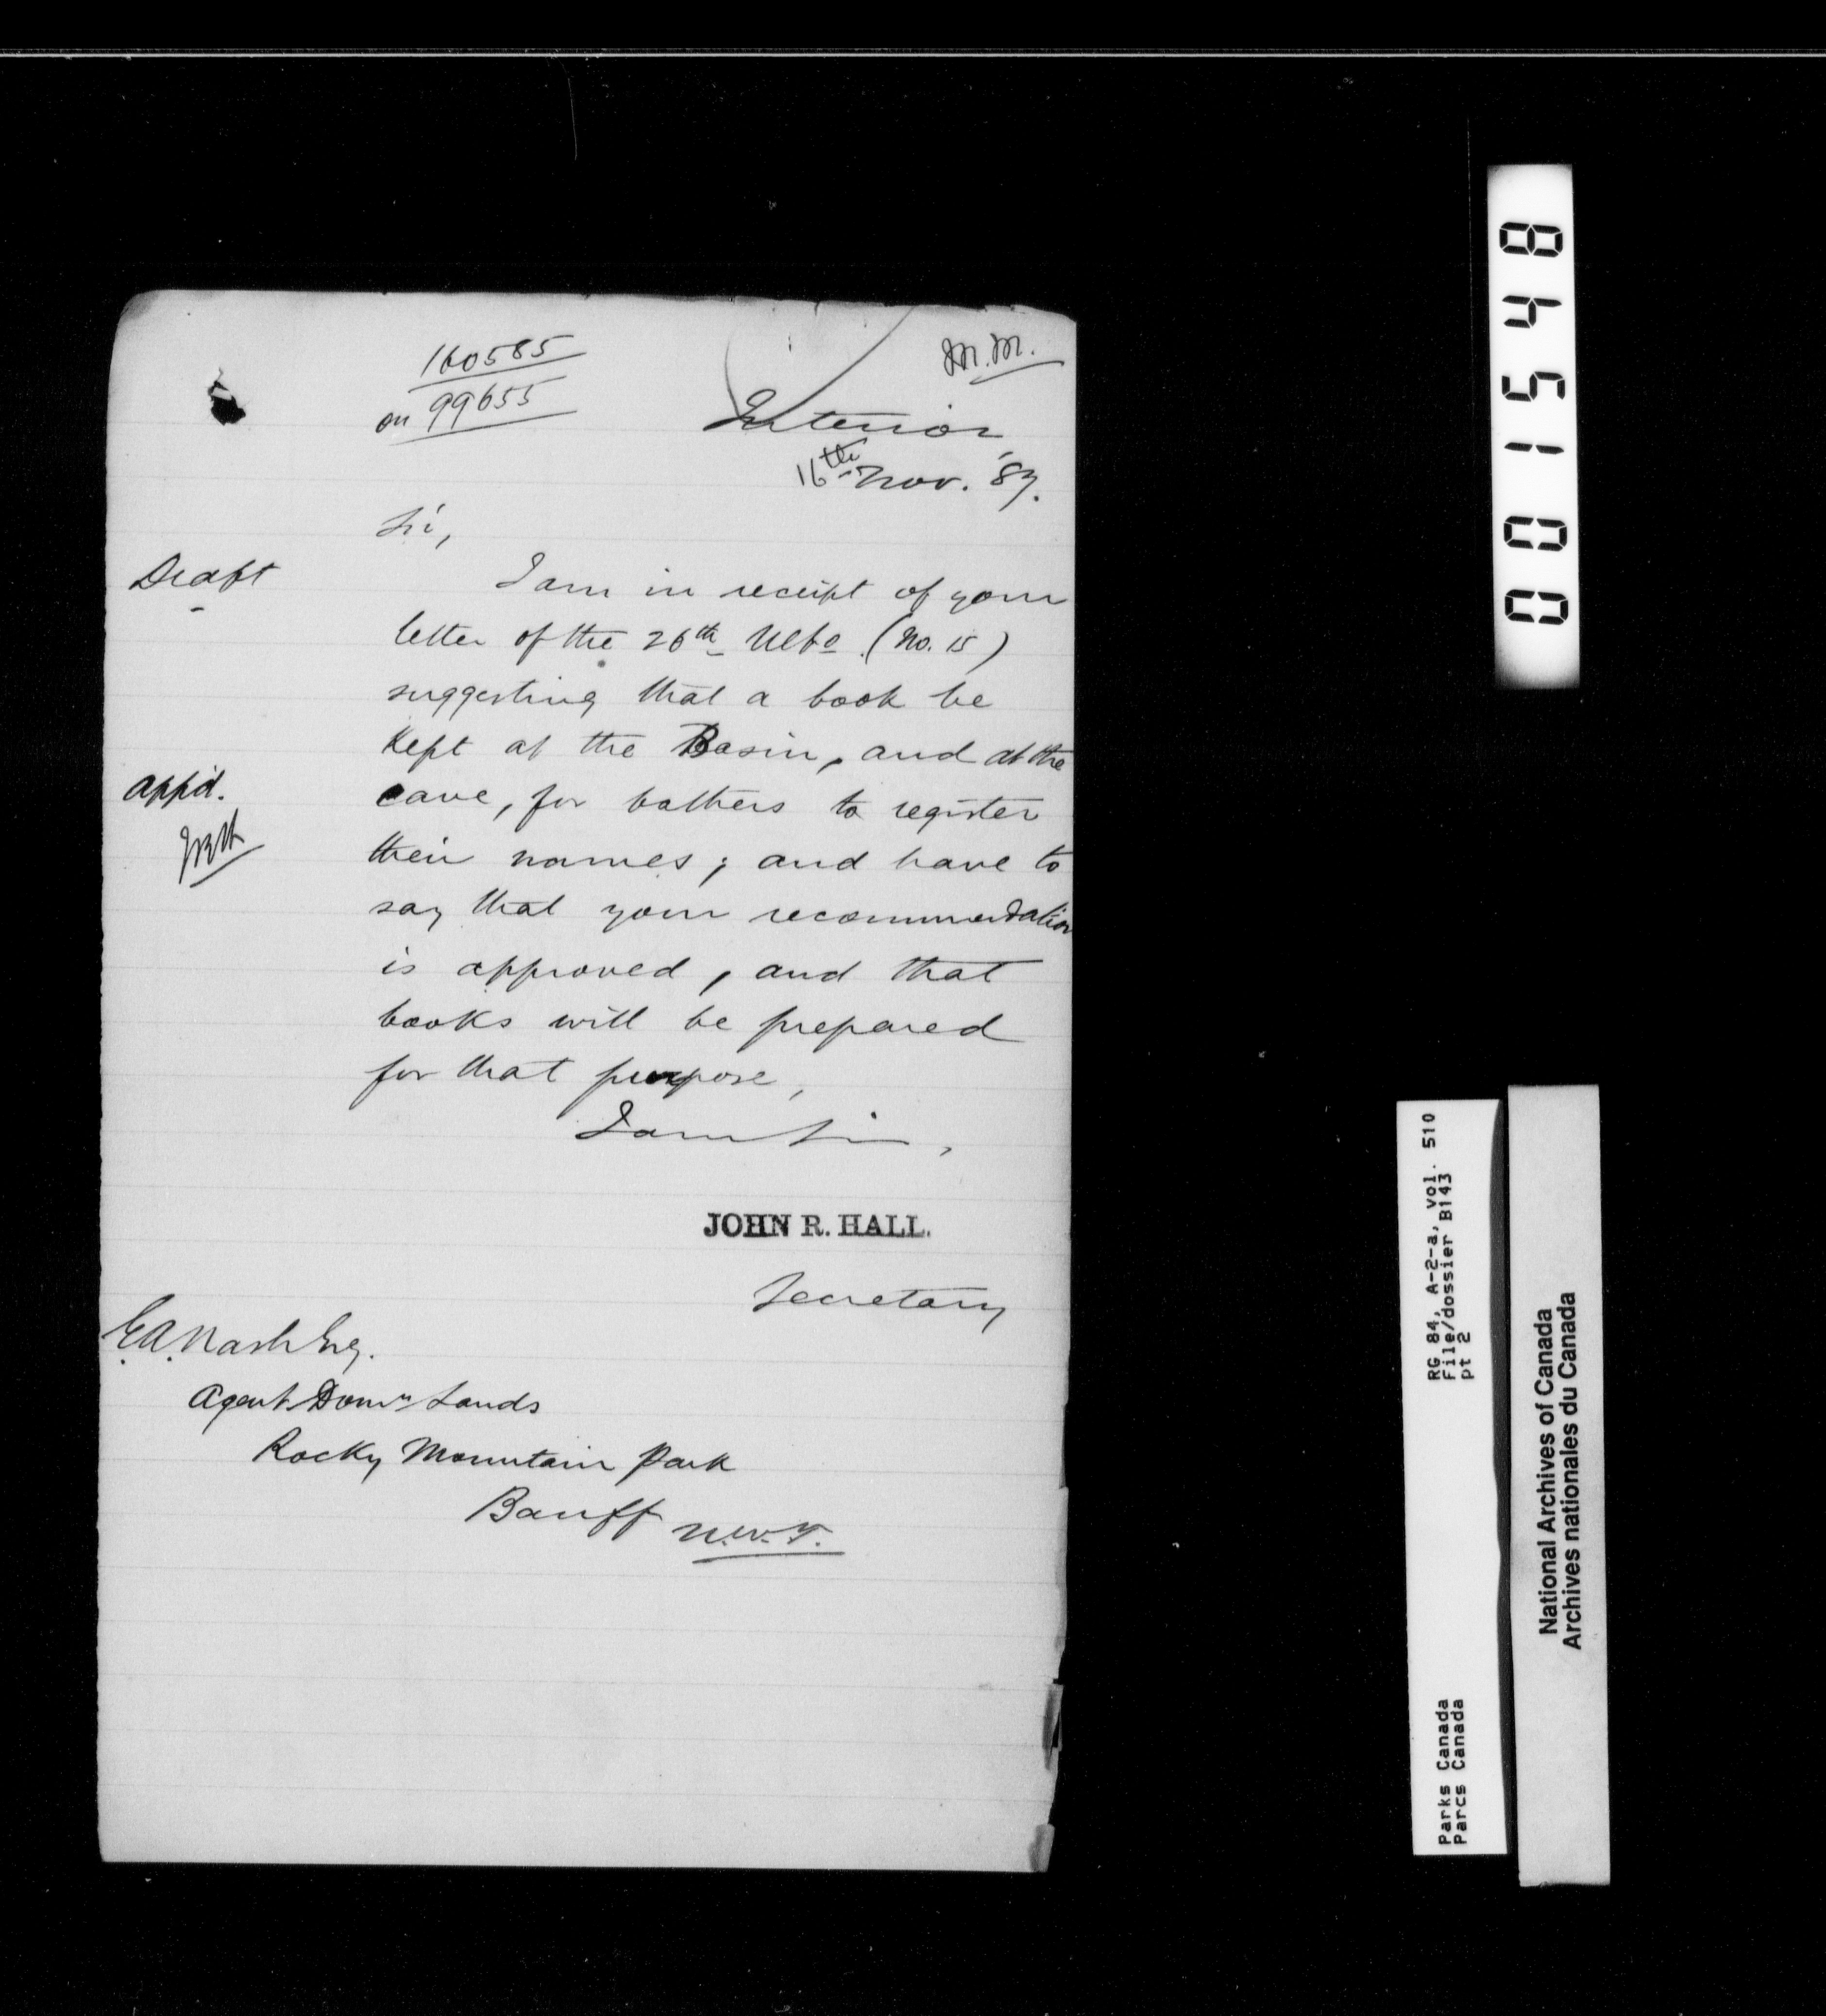 160585
on 99655
M.M.
Interior,
16th Nov. '87.
Sir,
Draft
I am in receipt of your
letter of the 26th Ulto. (No. 15)
suggesting that a book be
kept at the Basin, and at the
cave, for bathers to register
their names; and have to
say that your recommendation
is approved, and that
books will be prepared
for that purpose,
I am Sir,
app'd.
JRH
JOHN R. HALL.
Secretary
E.A. Nash Esq.
Agent Domn Lands
Rocky Mountain Park
Banff N.W.T.
001548
RG 84, A-2-a, vol. 510
File/dossier B143
pt 2
Parks Canada
Parcs Canada
National Archives of Canada
Archives nationales du Canada